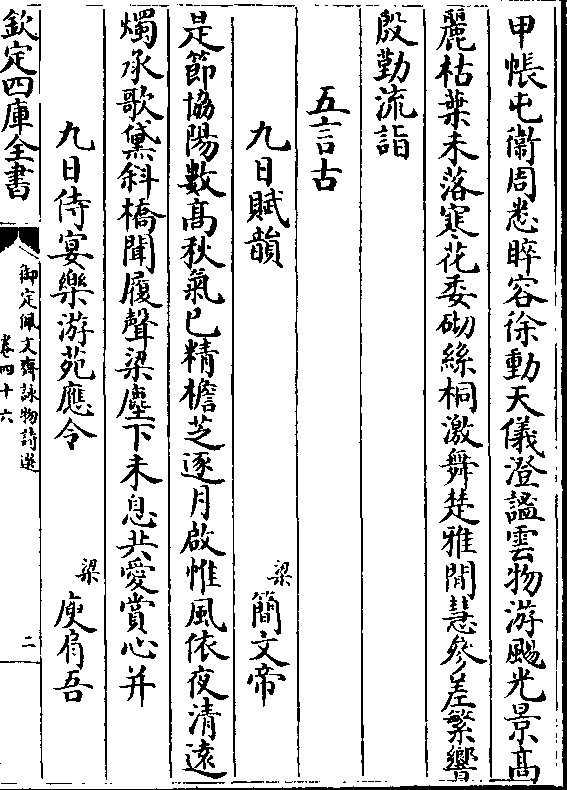 甲帳屯衛周悉睟容徐動天儀澄謐雲物游颺光景高
麗枯葉未落寒花委砌絲桐激舞楚雅閒慧參差繁響
殷勤流詣
五言古
九日賦韻 梁 簡文帝
是節協陽數高秋氣已精檐芝逐月啟帷風依夜清遠
燭承歌黛斜橋聞履聲梁塵下未息共愛賞心并
九日侍宴樂游苑應令 梁 庾肩吾
欽定四庫全書
御定佩文齋詠物詩選
卷四十六
二